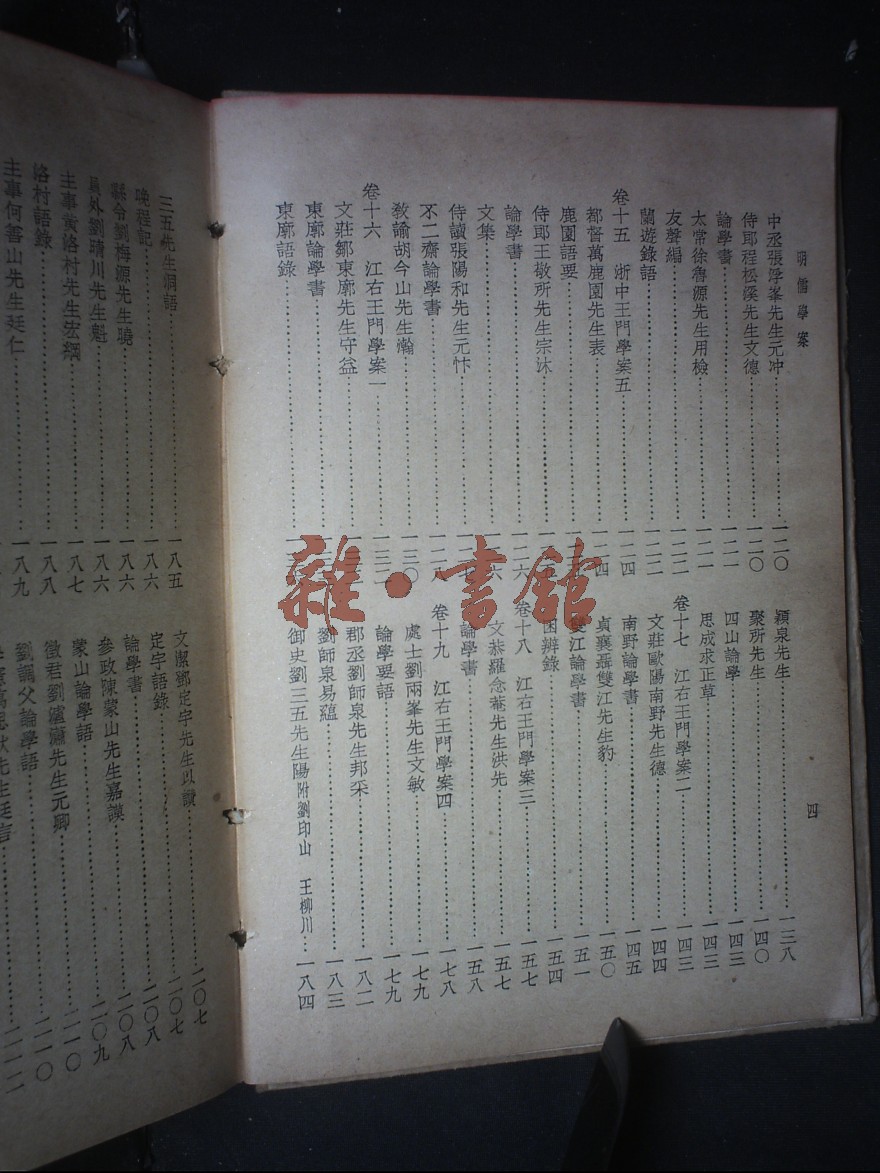 明儒學案
四
中丞張浮峯先生元冲……一二〇
侍郎程松溪先生文德……一二〇
論學書……一二一
太常徐魯源先生用檢……一二一
友聲編……一二二
蘭遊錄語……一二二
卷十五　浙中王門學案五……一二四
都督萬鹿園先生表……一二四
鹿園語要
侍郎王敬所先生宗沐
論學書……一二六
文集
侍讀張陽和先生元忭
不二齋論學書……一二八
敎諭胡今山先生瀚……一三〇
卷十六　江右王門學案一……一三二
文莊鄒東廓先生守益
東廓論學書
東廓語錄
潁泉先生……一三八
聚所先生……一四〇
四山論學……一四三
思成求正草……一四三
卷十七　江右王門學案二……一四三
文莊歐陽南野先生德……一四四
南野論學書……一四五
貞襄聶雙江先生豹……一五〇
雙江論學書……一五一
困辯錄……一五四
卷十八　江右王門學案三……一五七
文恭羅念菴先生洪先……一五七
論學書……一五八
卷十九　江右王門學案四……一七八
處士劉兩峯先生文敏……一七九
論學要語……一七九
郡丞劉師泉先生邦采……一八二
劉師泉易蘊……一八三
御史劉三五先生陽附劉印山　王柳川……一八四
三五先生洞語……一八五
晚程記……一八六
縣令劉梅源先生曉……一八六
員外劉晴川先生魁……一八六
主事黃洛村先生宏綱……一八七
洛村語錄……一八八
主事何善山先生廷仁……一八九
文潔鄧定宇先生以讚……二〇七
定宇語錄……二〇七
論學書……二〇八
參政陳蒙山先生嘉謨……二〇八
蒙山論學語……二〇九
徵君劉瀘瀟先生元卿……二一〇
劉調父論學語……二一〇
雜·書館